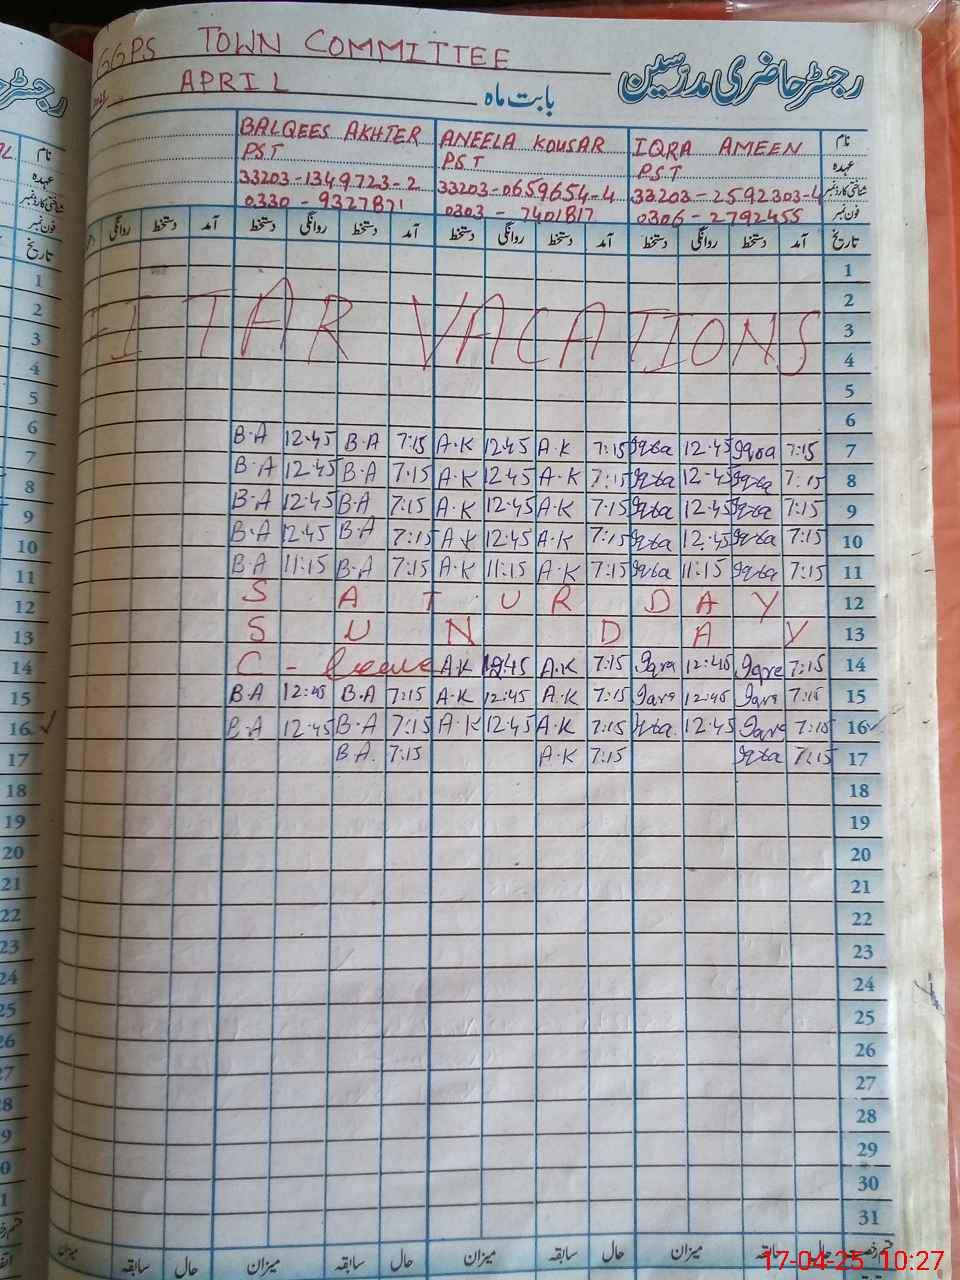 GGPS TOWN COMMITTEE
رجسٹر حاضری مدرسین
APRIL بابت ماہ
BALQEES AKHTER ANEELA KOUSAR IQRA AMEEN نام
PST PST PST عہدہ
33203-1349723-2 33203-0659654-4 33203-2592303-4 شناختی کارڈ نمبر
0330-9327821 0303-7401817 0306-2792455 فون نمبر
روانگی دستخط آمد دستخط روانگی دستخط آمد دستخط روانگی دستخط آمد دستخط روانگی دستخط آمد تاریخ
1
2
ITAR VACATIONS 3
4
5
6
B.A 12:45 B.A 7:15 A.K 12:45 A.K 7:15 Iqra 12:45 Iqra 7:15 7
B.A 12:45 B.A 7:15 A.K 12:45 A.K 7:15 Iqra 12:45 Iqra 7:15 8
B.A 12:45 B.A 7:15 A.K 12:45 A.K 7:15 Iqra 12:45 Iqra 7:15 9
B.A 12:45 B.A 7:15 A.K 12:45 A.K 7:15 Iqra 12:45 Iqra 7:15 10
B.A 11:15 B.A 7:15 A.K 11:15 A.K 7:15 Iqra 11:15 Iqra 7:15 11
SATURDAY 12
SUNDAY 13
C-leave A.K 12:45 A.K 7:15 Iqra 12:45 Iqra 7:15 14
B.A 12:45 B.A 7:15 A.K 12:45 A.K 7:15 Iqra 12:45 Iqra 7:15 15
B.A 12:45 B.A 7:15 A.K 12:45 A.K 7:15 Iqra 12:45 Iqra 7:15 16
B.A. 7:15 A.K 7:15 Iqra 7:15 17
18
19
20
21
22
23
24
25
26
27
28
29
30
31
میزان سابقہ حال میزان سابقہ حال میزان سابقہ حال میزان سابقہ حال
17-04-25 10:27